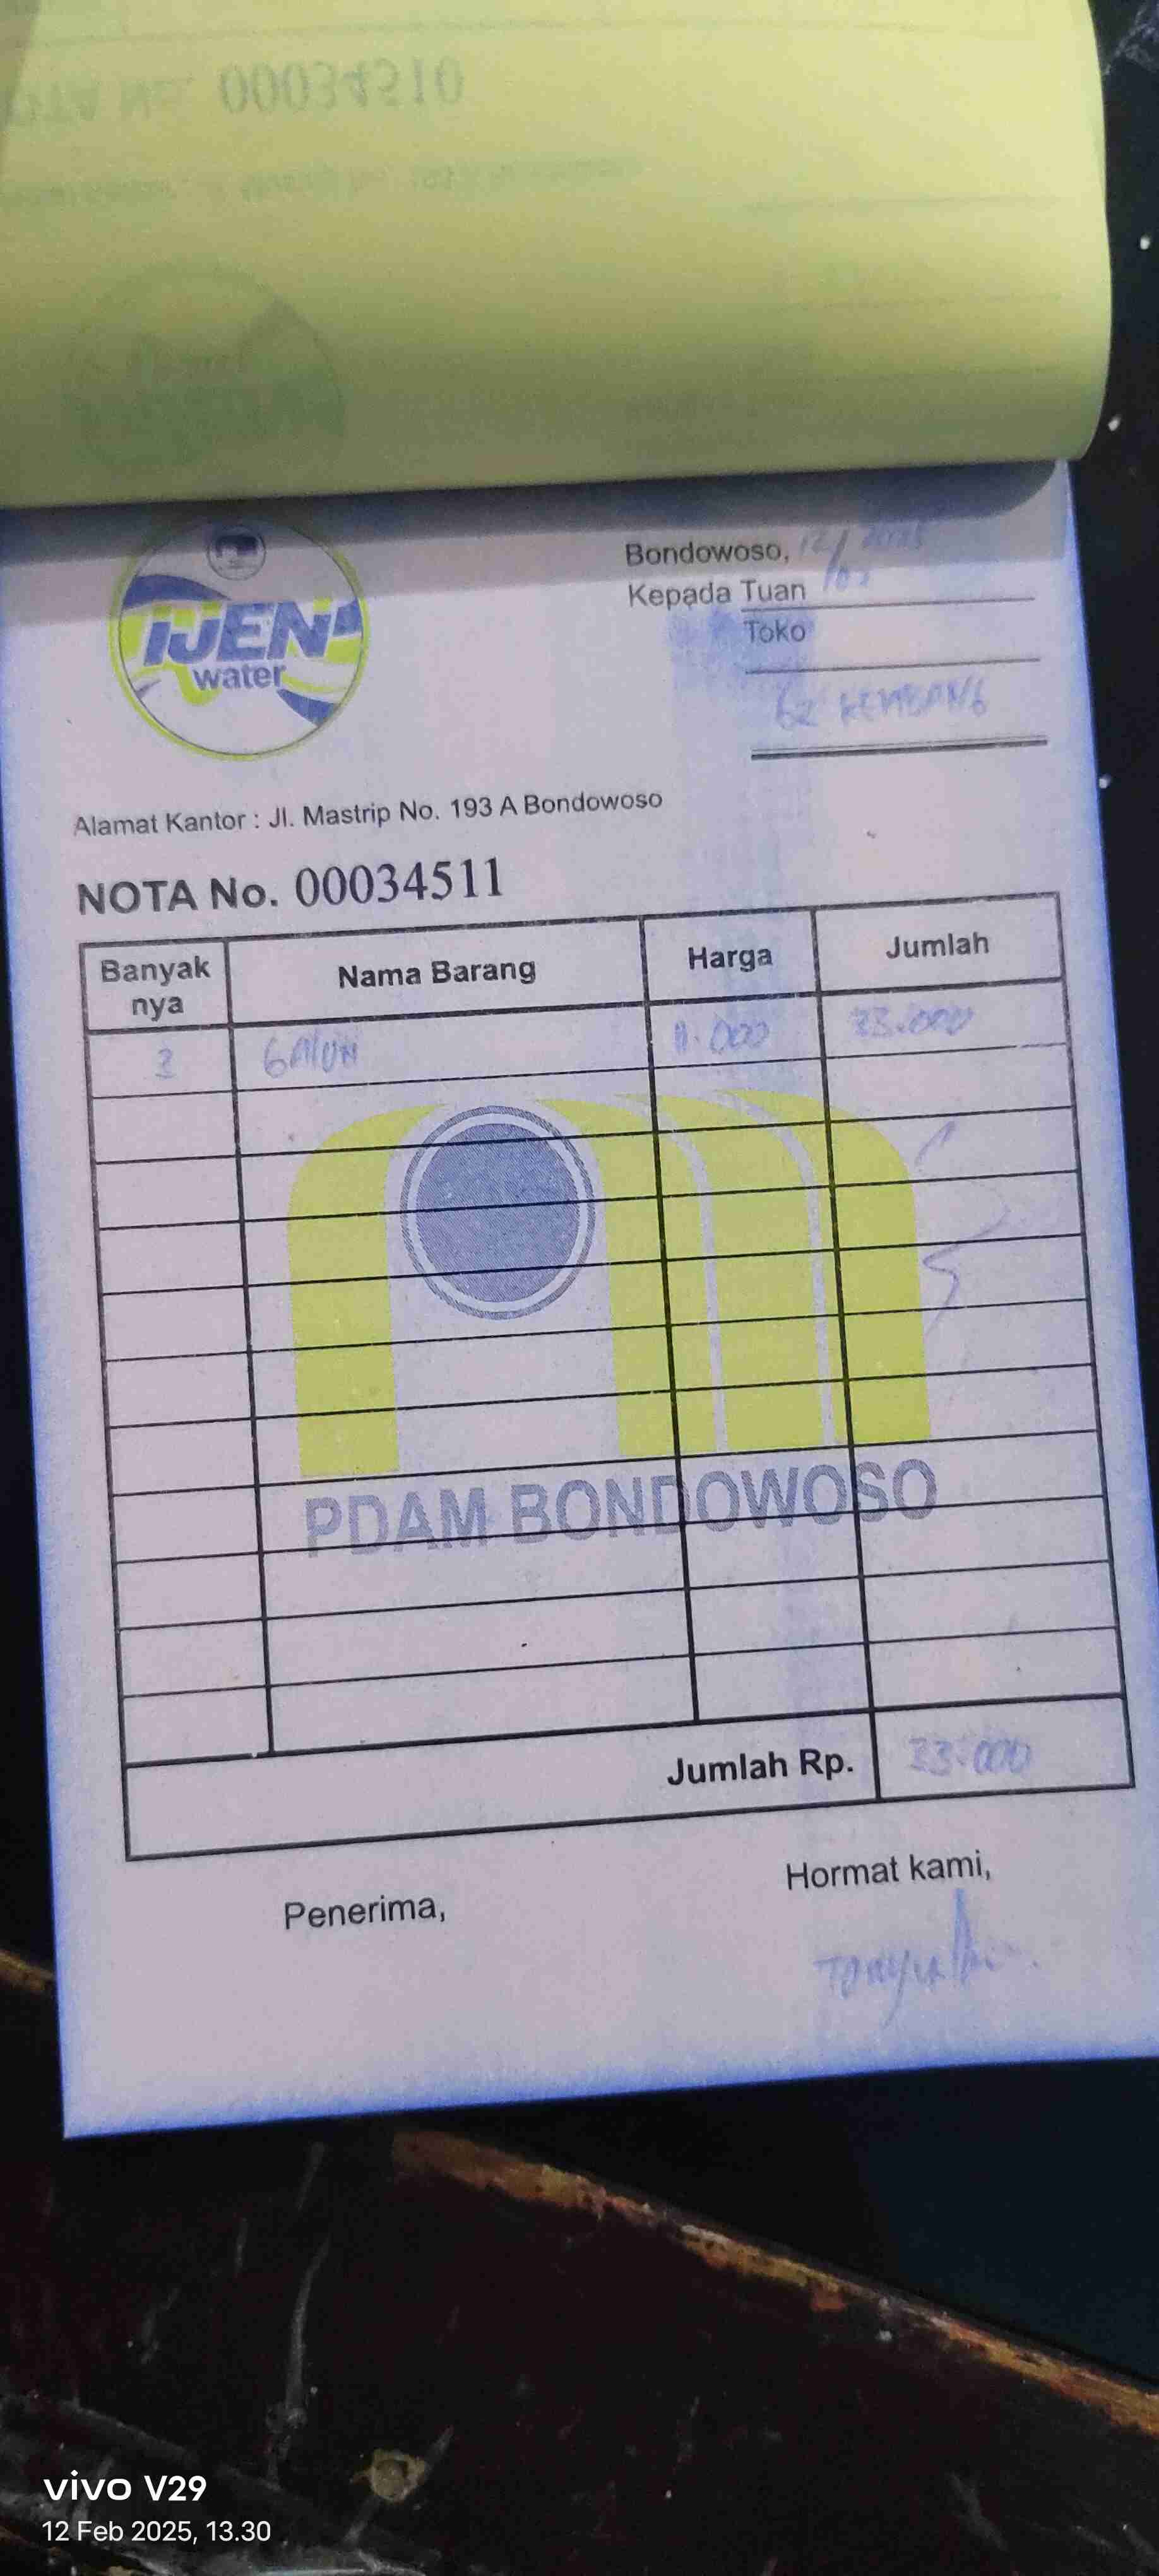 NOTA No. 00034510
IJEN
water
Bondowoso, 12/02 2025
Kepada Tuan
Toko
GZ KEMBANG
Alamat Kantor : Jl. Mastrip No. 193 A Bondowoso
NOTA No. 00034511
Banyak nya Nama Barang Harga Jumlah
3 GALON 11.000 33.000
PDAM BONDOWOSO
Jumlah Rp. 33.000
Penerima, Hormat kami,
vivo V29
12 Feb 2025, 13.30